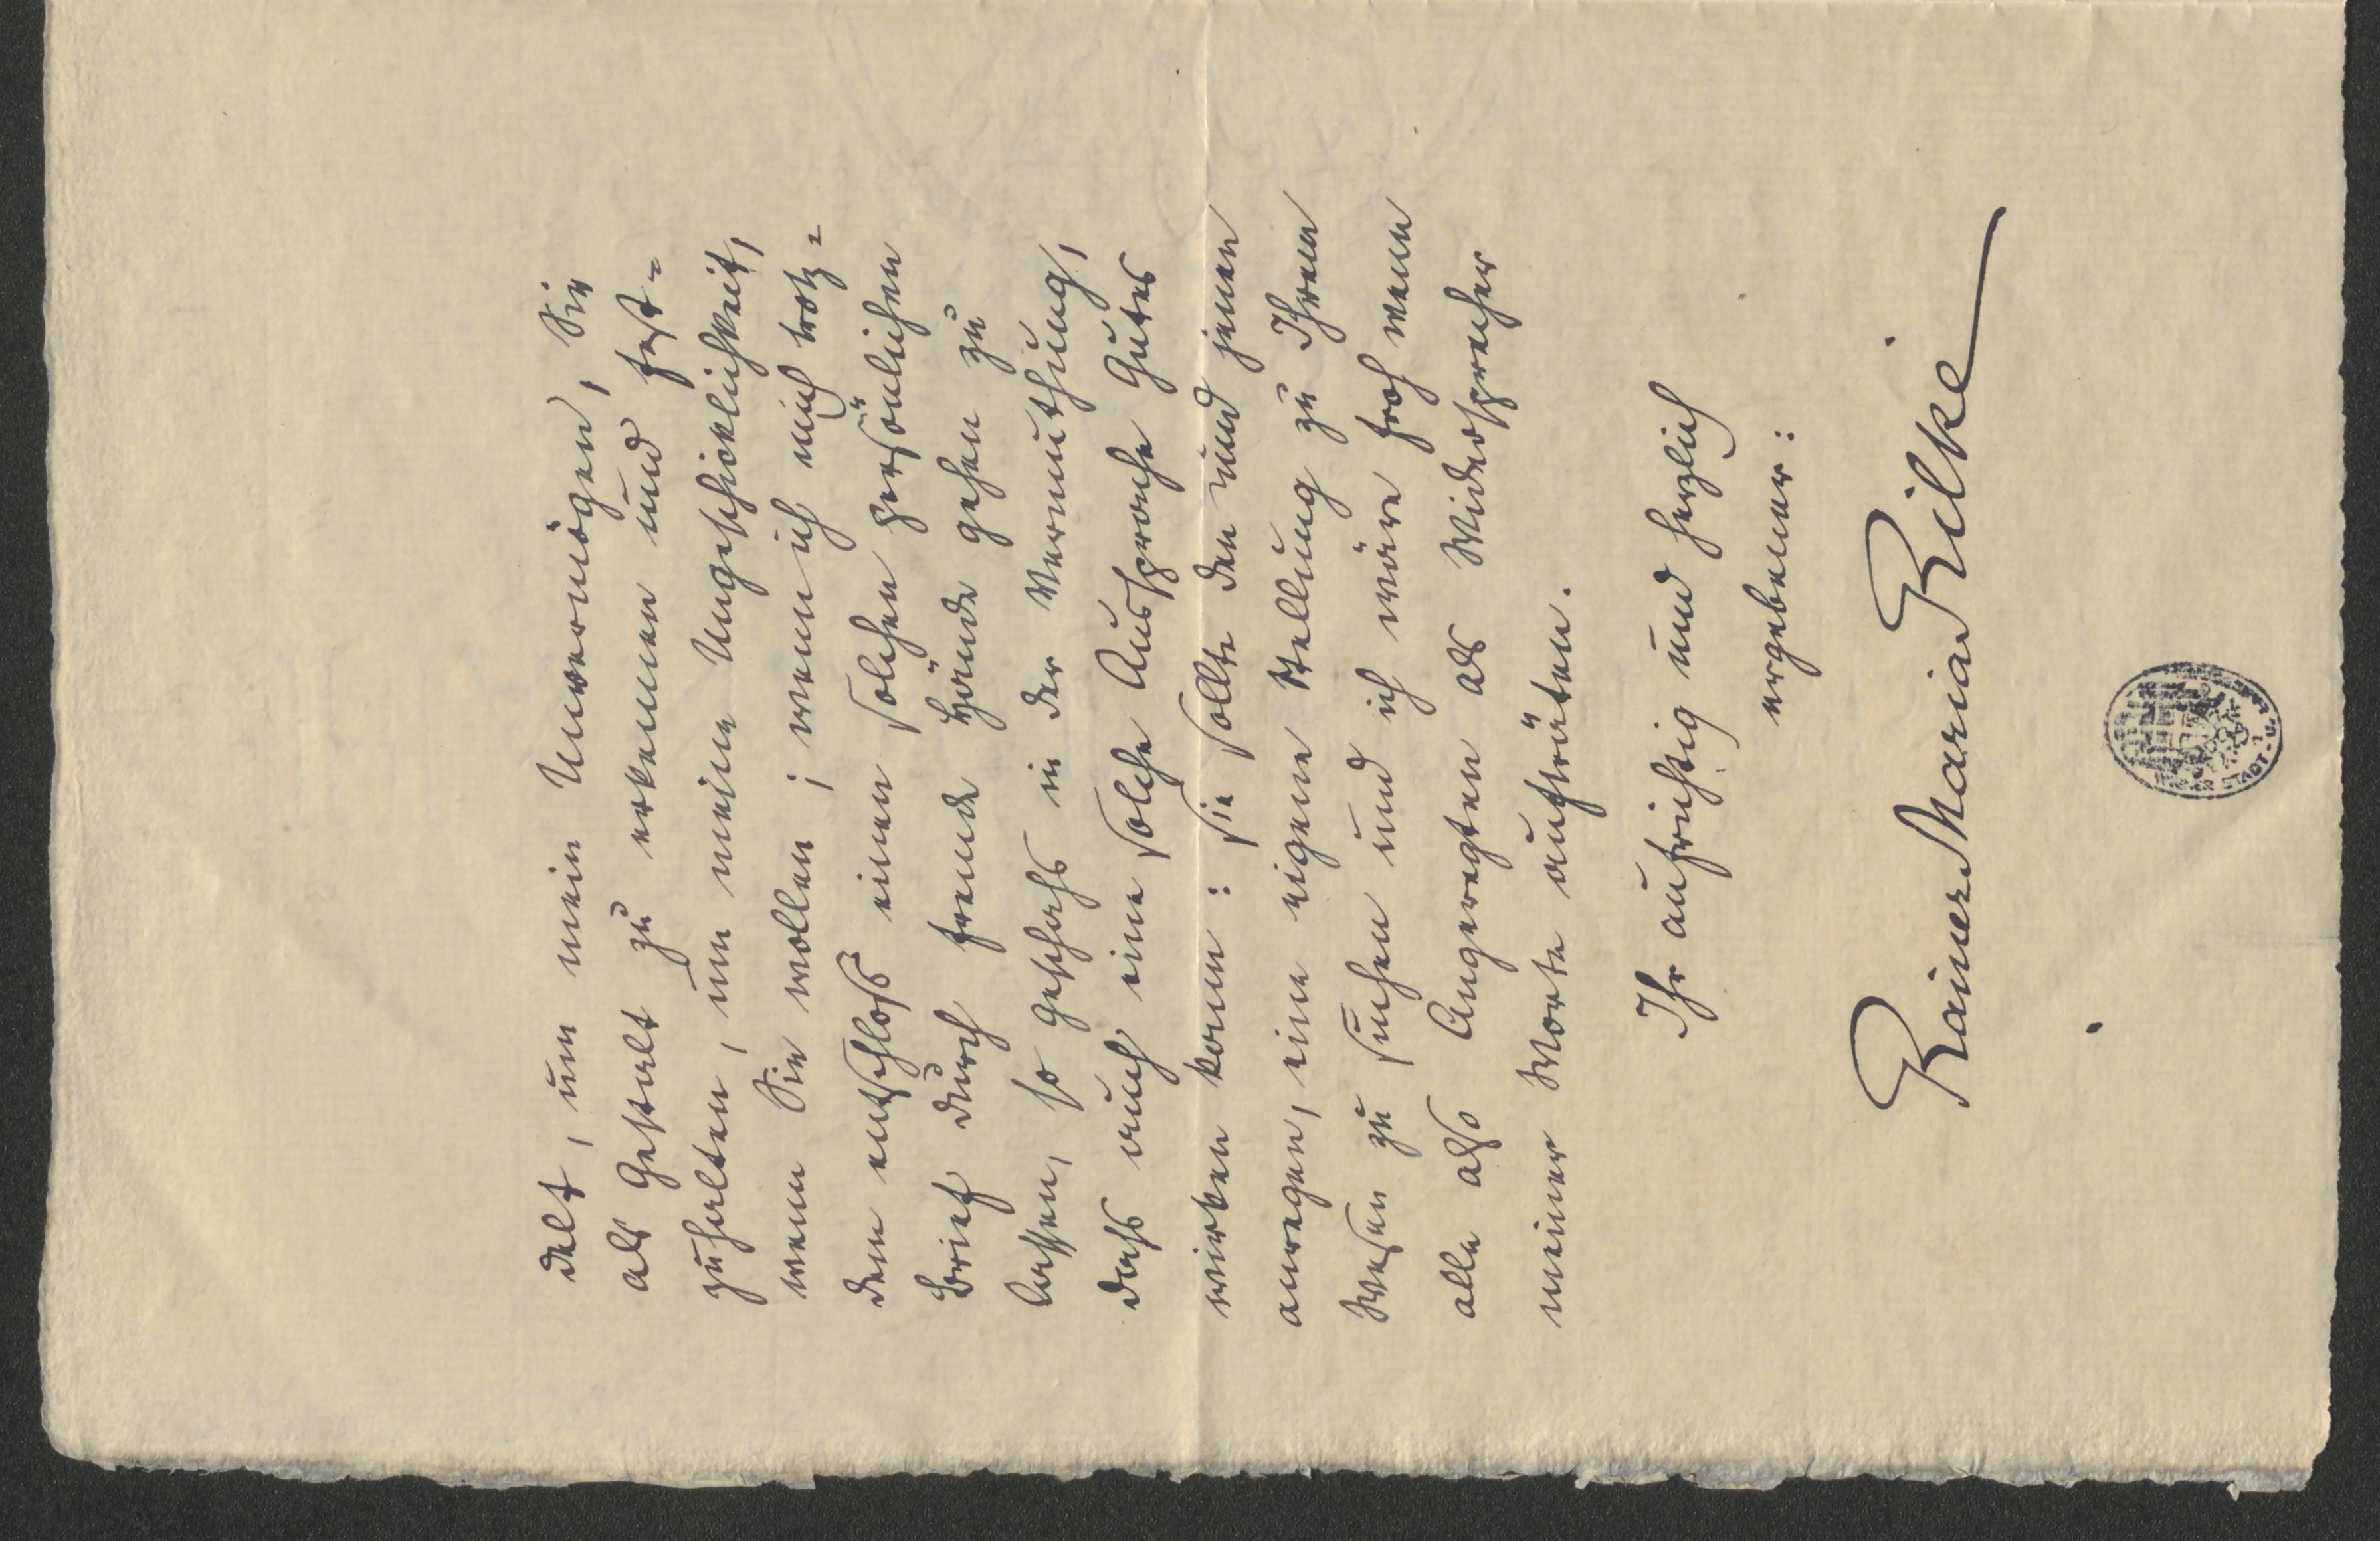 delt, um mein Unvermögen, Sie
als Gestalt zu erkennen und fest-
zuhalten, um meine Ungeschicklichkeit,
wenn Sie wollen; wenn ich mich trotz-
dem entschloß einen solchen persönlichen
Brief durch fremde Hände gehen zu
lassen, so geschahs in der Vermuthung,
dass auch eine solche Aussprache Gutes
wirken kann: sie sollte den und jenen
anregen, eine eigene Stellung zu Ihrem
Wesen zu suchen und ich wäre froh wenn
alle also Angeregten als Widersprecher
meiner Worte aufträten.
Ihr aufrichtig und herzlich
ergebener:
Rainer Maria Rilke